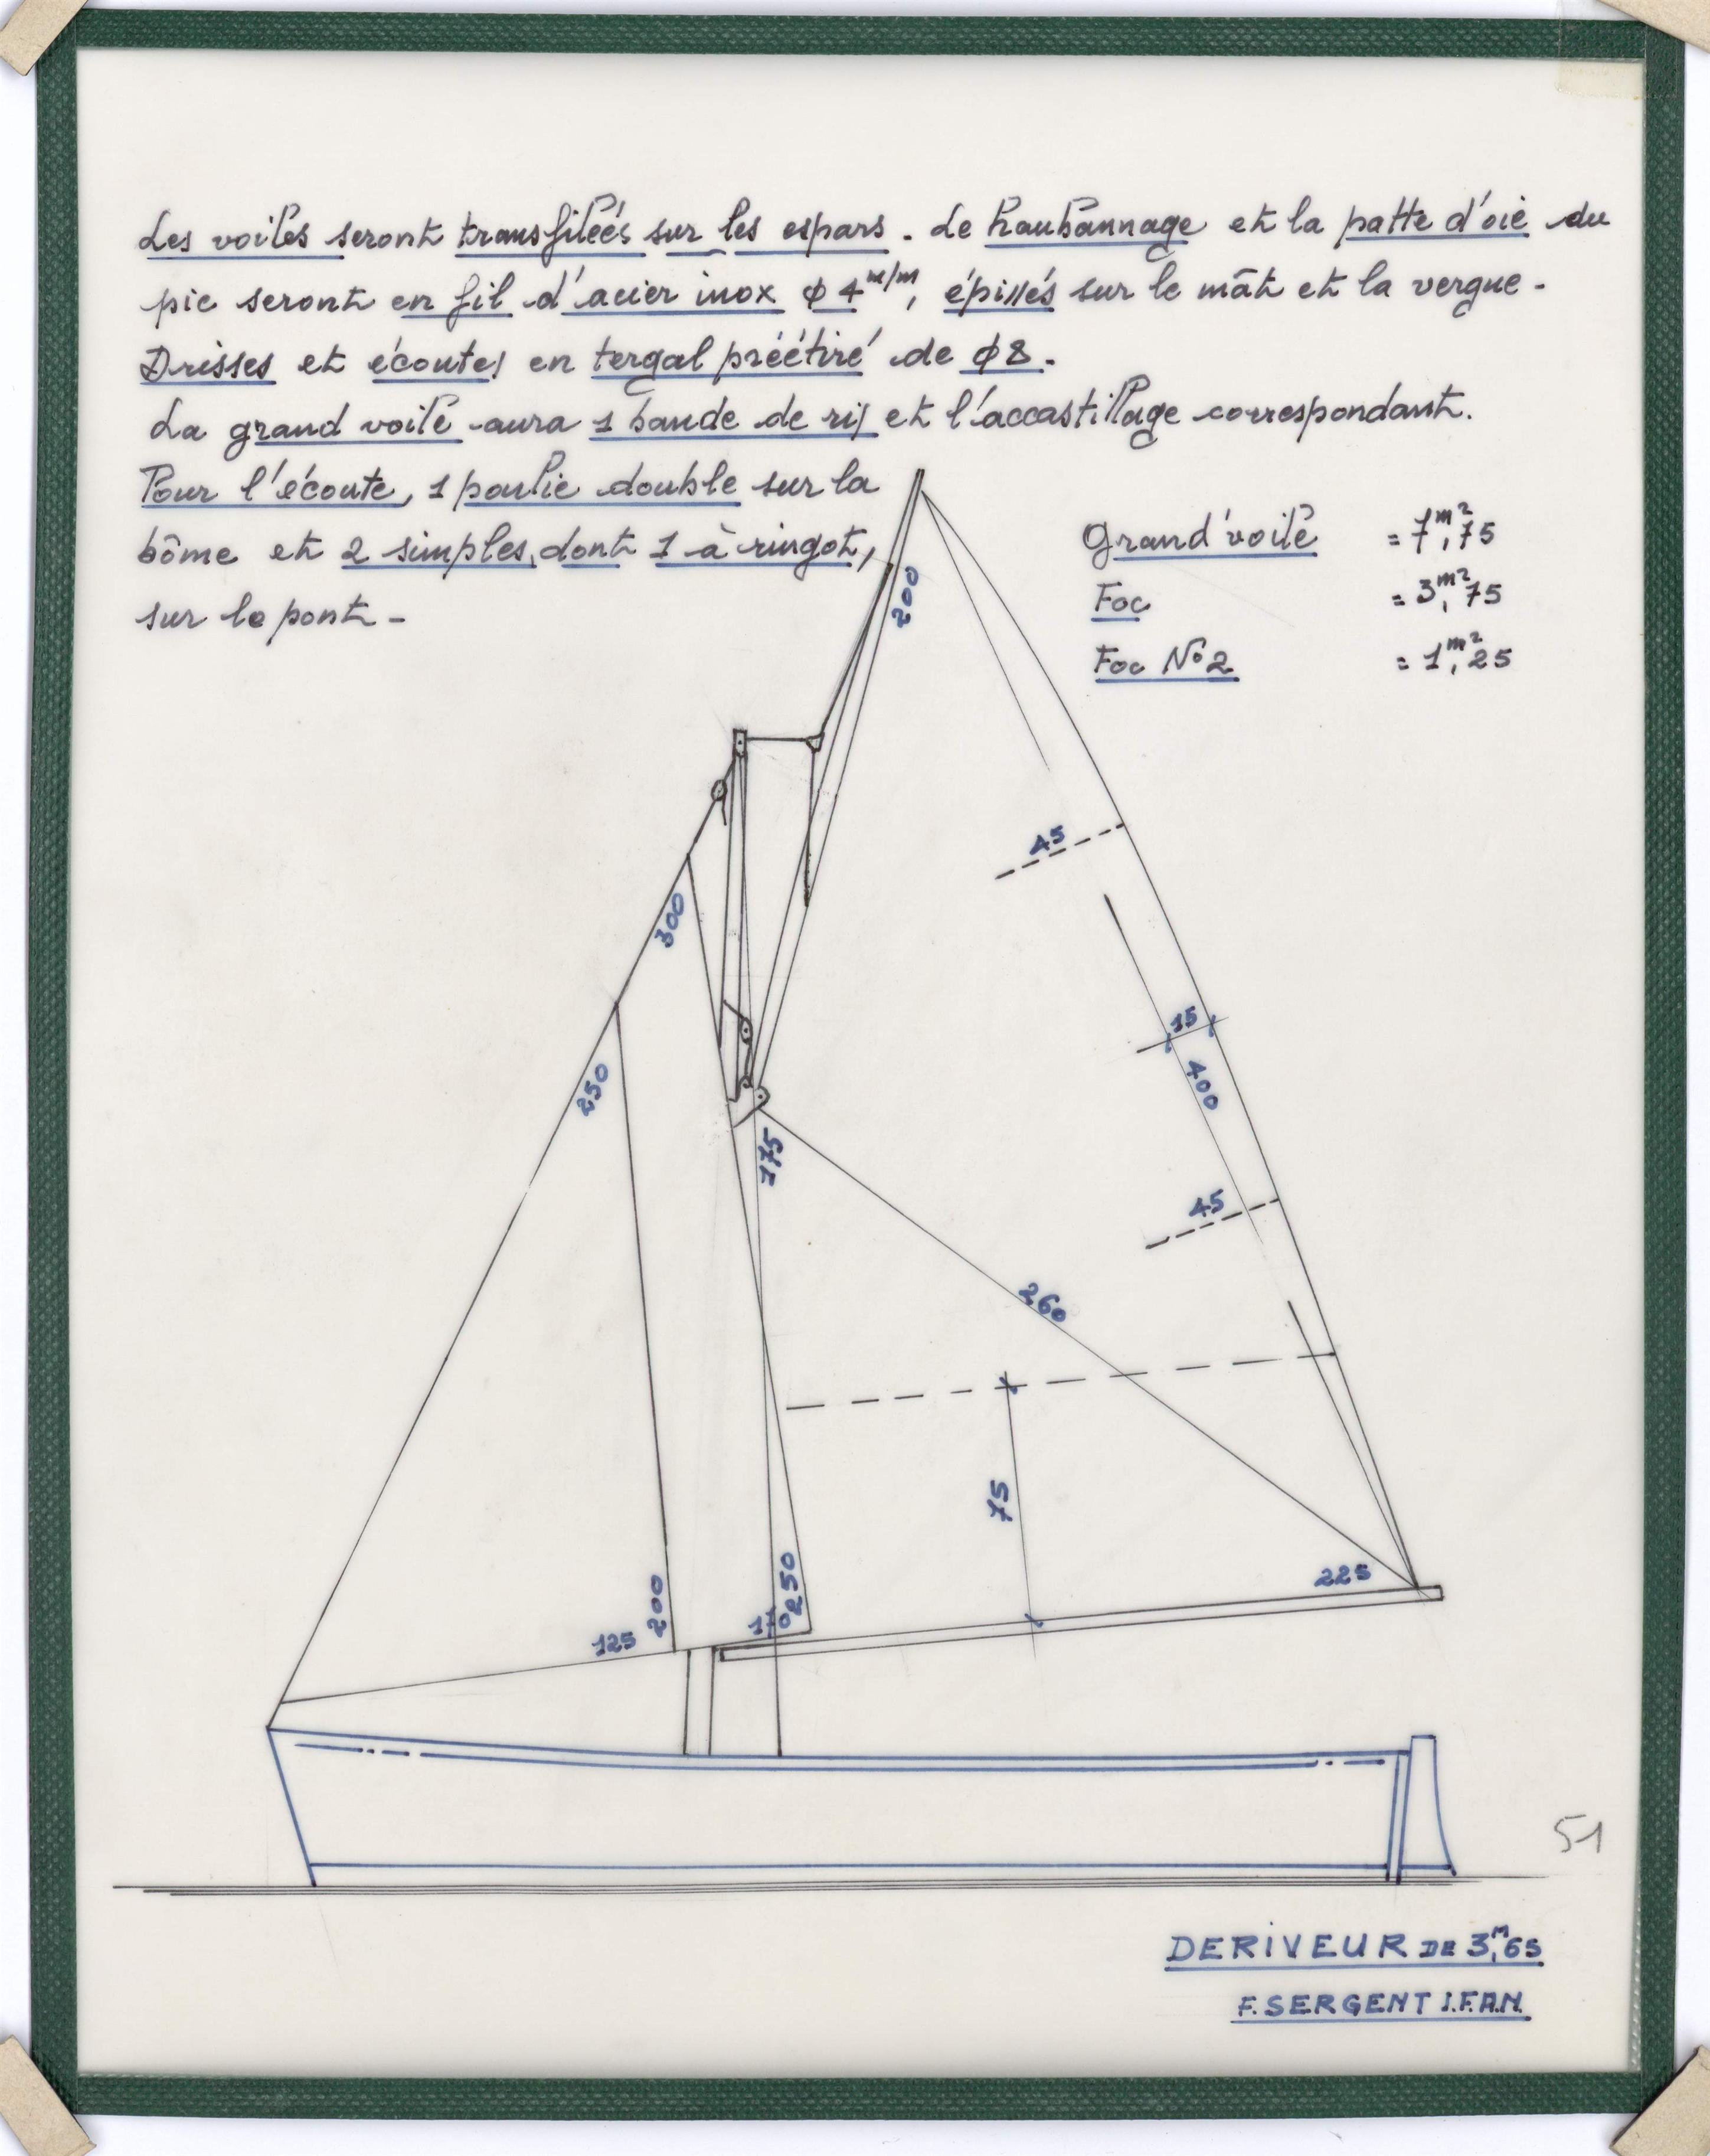 Les voiles seront transfilées sur les espars. Le haubannage et la patte d'oie du
pic seront en fil d'acier inox ϕ 4 m/m, épissés sur le mât et la vergue -
Drisses et écoutes en tergal préétiré de ϕ8.
La grand voile aura 1 bande de ris et l'accastillage correspondant.
Pour l'écoute, 1 poulie double sur la
bôme et 2 simples, dont 1 à ringot,
sur le pont -
Grand'voile = 7,m²75
Foc = 3,m²75
Foc N°2 = 1,m²25
200
45
300
15
400
250
175
45
260
75
225
250
200
170
125
51
DERIVEUR DE 3,M65
F. SERGENT I.F.A.N.